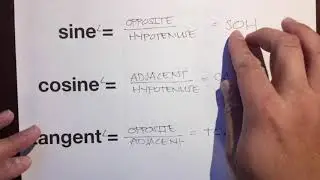 sine∠ = OPPOSITE / HYPOTENUSE = SOH
cosine∠ = ADJACENT / HYPOTENUSE =
tangent∠ = OPPOSITE / ADJACENT =